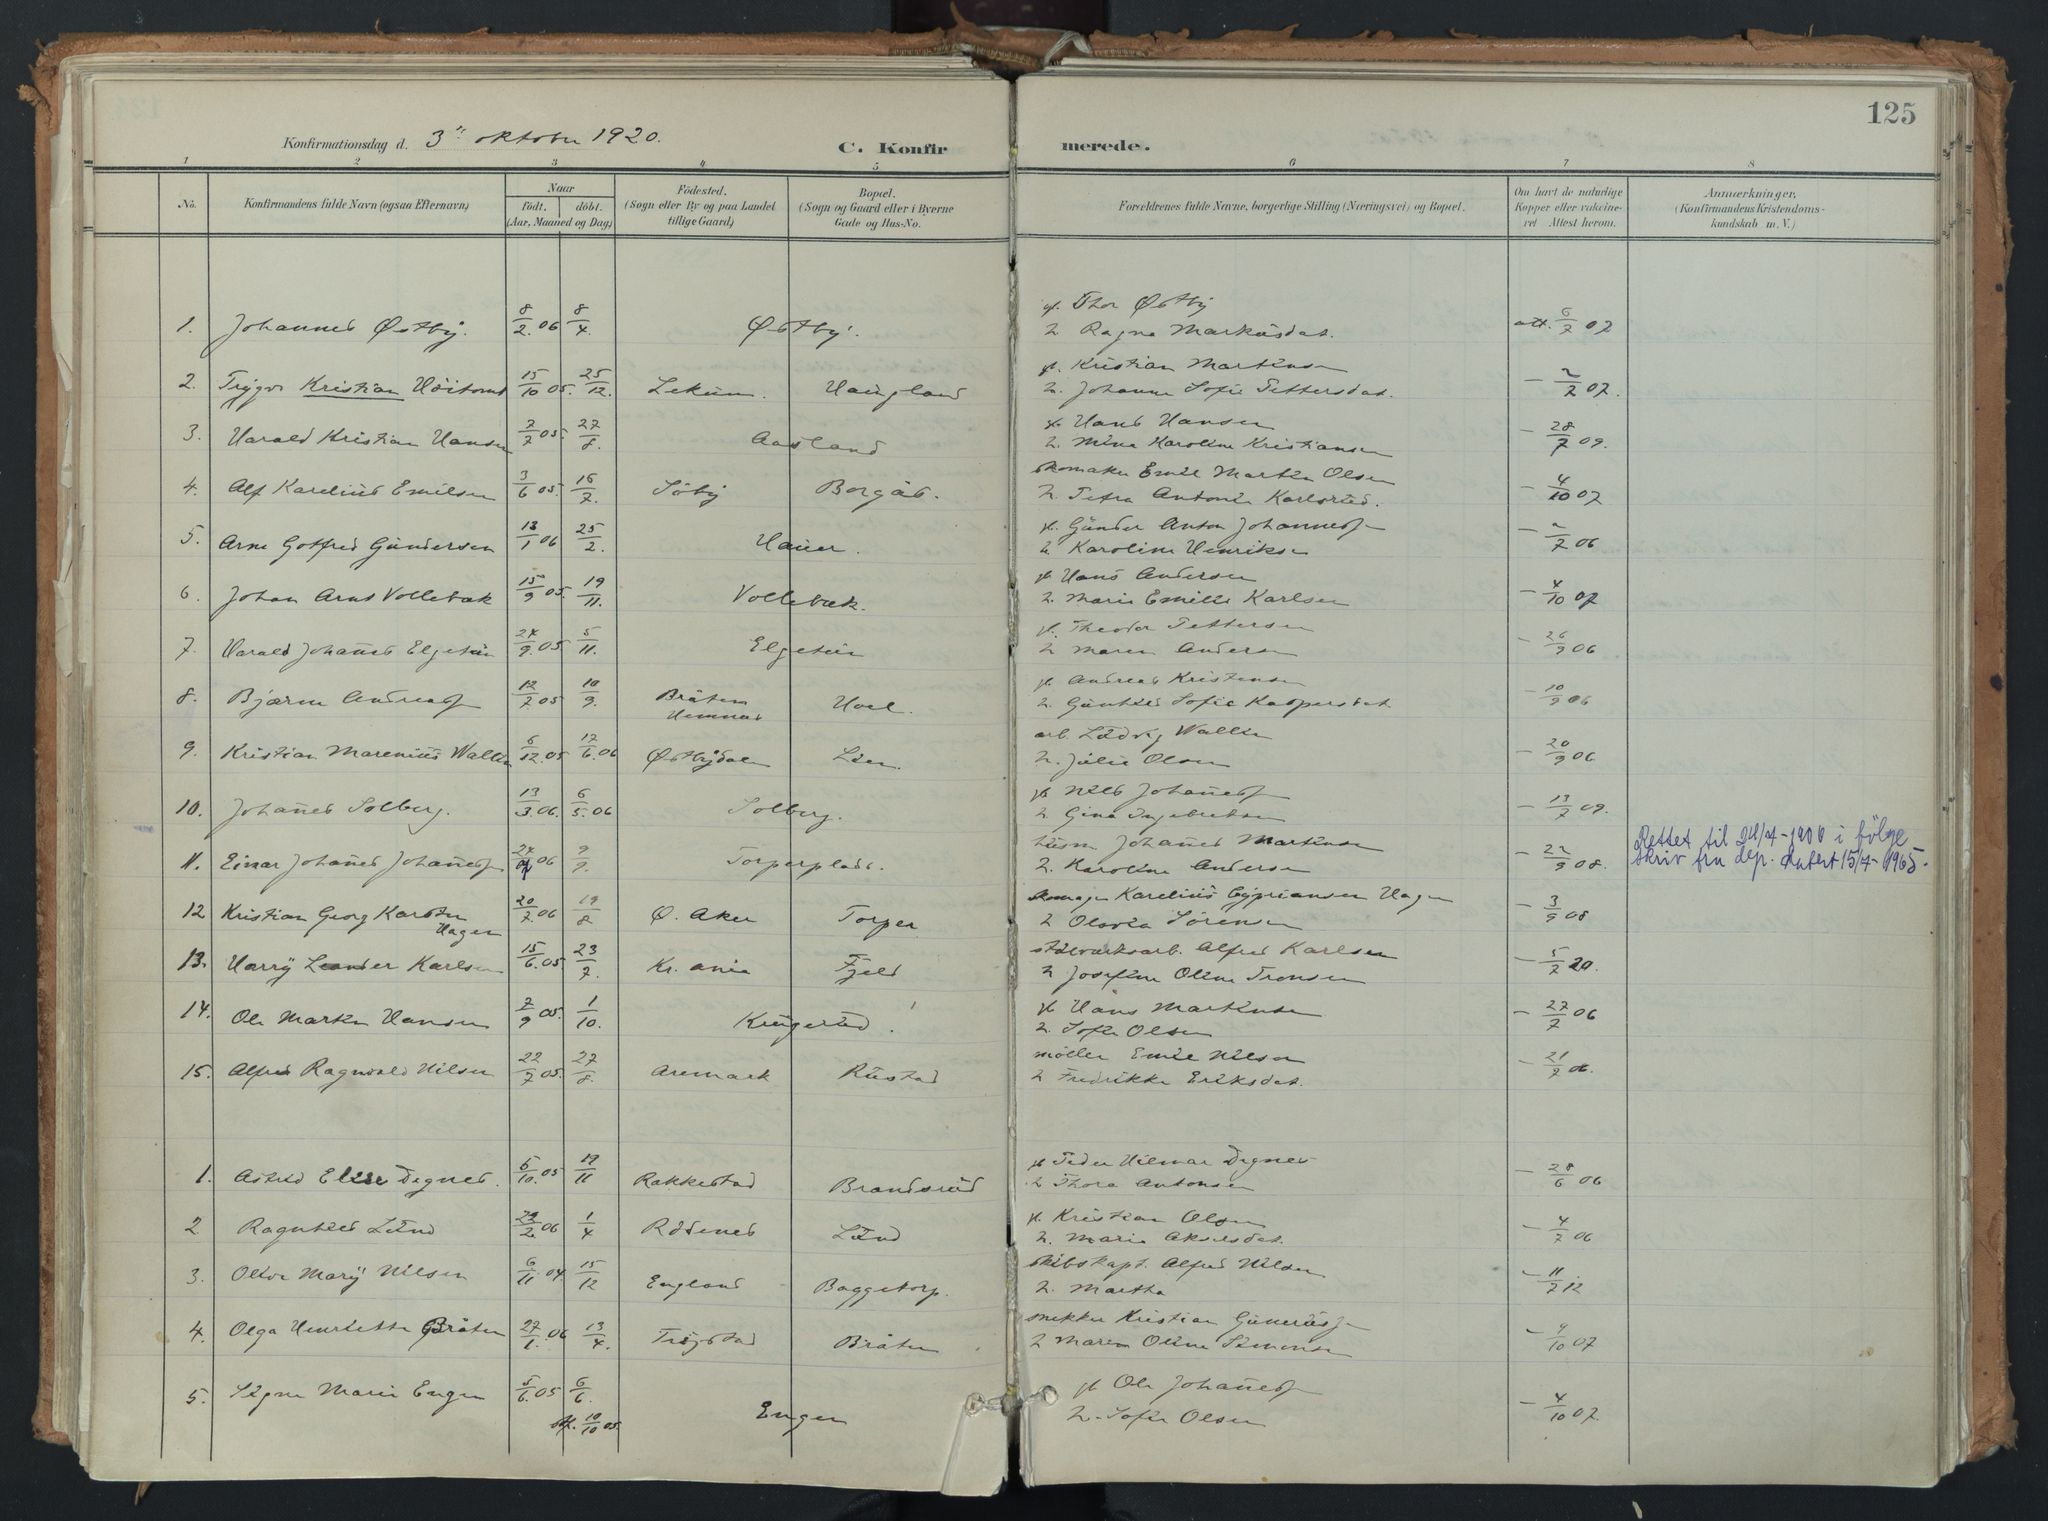 125
Konfirmationsdag d. 3die oktober 1920.
C. Konfirmerede.
1 2 3 4 5 6 7 8
No. Konfirmandens fulde Navn (ogsaa Efternavn) Naar født. døbt. (Aar, Maaned og Dag) Fødested. (Sogn eller By og paa Landet tillige Gaard) Bopæl. (Sogn og Gaard eller i Byerne Gade og Hus-No. Forældrenes fulde Navne, borgerlige Stilling (Næringsvei) og Bopæl. Om havt de naturlige Kopper eller vaccineret Attest herom. Anmærkninger. (Konfirmandens Kristendomskundskab m. V.)
1. Johannes Østby. 8/2 06 8/4. Østby. gb. Thor Østby
h. Ragna Markusdat. att. 6/7 07
2. Trygve Kristian Høitomt 15/10 05. 25/12. Lekum. Haugland gb. Kristian Martinsen
h. Johanne Sofie Pettersdat. – 2/7 07.
3. Harald Kristian Hansen 7/7 05. 27/8. Aasland gb. Hans Hansen
h. Mina Karoline Kristiansen – 28/7 09.
4. Alf Karelius Emilsen 3/6 05. 16/7. Søby Borgås. skomaker Emil Martin Olsen
h. Petra Antonie Karlsrud. – 4/10 07
5. Arne Gotfred Gundersen 13/1 06 25/2. Hauer. gb. Gunder Anton Johannessen
h. Karoline Henriksen – 2/7 06
6. Johan Arnt Vollebæk 15/9 05. 19/11. Vollebæk. gb. Hans Andersen
h. Marie Emilie Karlsen – 4/10 07
7. Harald Johannes Elgetun 24/9. 05 5/11. Elgetun gb. Theodor Pettersen
h. Maren Andersen – 26/9 06
8. Bjarne Andreassen 12/7 05 10/9. Bråten Hemnes Hoel. gb. Andreas Kristensen
h. Gunhild Sofie Kaspersdat. – 10/9 06
9. Kristian Marenius Wallin 6/12. 05 17/6. 06 Østbydalen Lien. arb. Ludvig Wallin
h. Julie Olsen – 20/9 06
10. Johannes Solberg. 13/3. 06. 6/5. 06 Solberg. gb. Nils Johannessen
h. Gina Ingebretsen – 13/7 09.
11. Einar Johannes Johannessen 24/4 06 9/9. Torperplads. husm. Johannes Martinsen
h. Karoline Andersen – 22/9 08. Rettet til 24/4-1906 i følge
skriv fra dep. datert 15/7-1965.
12 Kristian Georg Karsten Hagen 20/7 06 19/8 Ø. Aker Torper Karelius Cypriansen Hagen
h Olavia Sørensen – 3/9 08
13. Harry Leander Karlsen 15/6. 05. 23/7. Kr.ania Fjeld stålverksarb. Alfred Karlsen
h Josefine Oline Tronsen – 5/7 20.
14. Ole Martin Hansen 7/9 05. 1/10. Krugerud gb Hans Martinsen
h. Sofie Olsen – 27/7 06
15. Alfred Ragnvald Nilsen 22/7 05. 27/8. Aremark Rustad møller Emil Nilsen
h Fredrikke Eriksdat. – 21/7 06.
1. Astrid Elise Degnes. 5/10. 05 19/11 Rakkestad Brandsrud gb Peder Hilmar Degnes
h Thora Antonsen – 28/6 06
2 Ragnhild Lund 22/2. 06 1/4 Rødenes Lund gb. Kristian Olsen
h. Marie Akselsdat. – 4/7 06
3. Olive Mary Nilsen 6/11. 04 15/12 England Baggetorp. skibskapt. Alfred Nilsen
h. Martha – 11/7 12
4. Olga Henriette Bråten 27/1. 06 13/4. Trøgstad Bråten snekker Kristian Gunerius
h Maren Oline Simonsen – 4/10 07
5. Signe Marie Engen 5/6. 05 6/6. stf. 10/10 05. Engen gb Ole Johannessen
h. Sofie Olsen – 4/10 07.